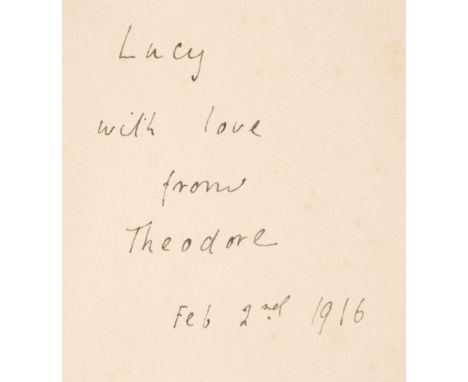 Lucy
with love
from
Theodore
Feb 2nd 1916